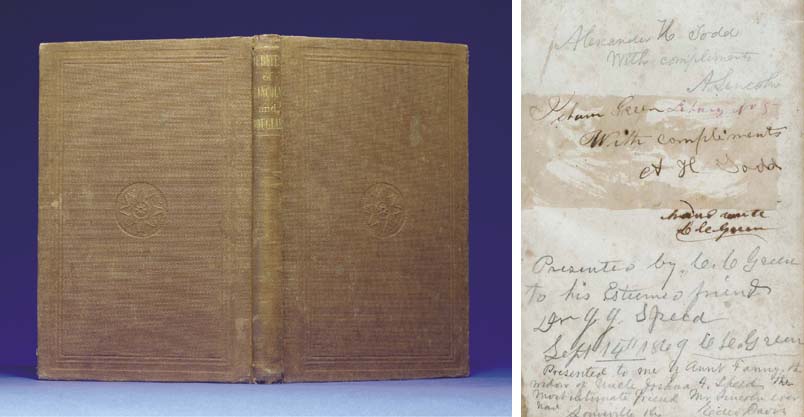 DEBATES
of
LINCOLN
and
DOUGLAS
Alexander H Todd
With compliments
A Lincoln
Green Library No 5
With compliments
A H Todd
C C Green
Presented by C C Green
to his Esteemed friend
Dr J J Speed
Sept 14th 1869 C C Green
Presented to me by Aunt Fanny, the
widow of Uncle Joshua F. Speed "The
most intimate friend Mr Lincoln ever
had
Louisville Ky